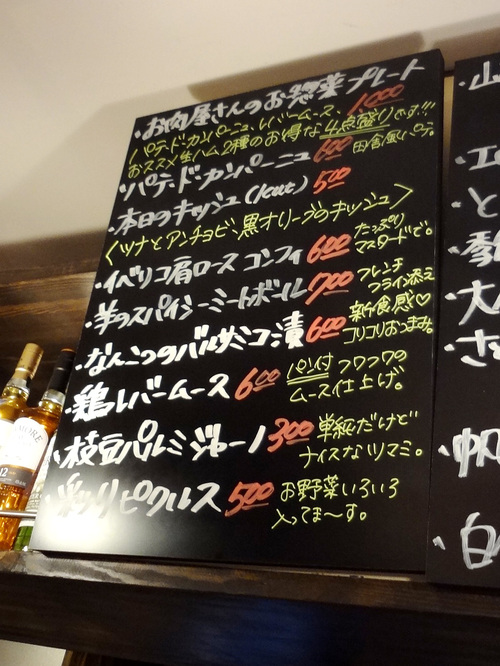 ・お肉屋さんのお惣菜プレート
パテ・ド・カンパーニュ、レバームース、1,000
おススメ生ハム2種のお得な4点盛りです!!!
ソパテ・ド・カンパーニュ 600 田舎風パテ。
・本日のキッシュ(1cut) 500
〈ツナとアンチョビ、黒オリーブのキッシュ〉
・イベリコ肩ロース コンフィ 600 たっぷり
マスタードで。
・羊のスパイシーミートボール 700 フレンチ
フライ添え
・なんこつのバルサミコ漬 600 新食感♡
コリコリおつまみ。
・鶏レバームース 600 パン付 フワフワの
ムース仕上げ。
・枝豆パルミジャーノ 300 単純だけど
ナイスなツマミ。
ピクルス 500 お野菜いろいろ
入ってま〜す。
・山
・と
・季
・大
・さ
・帆
・白
12